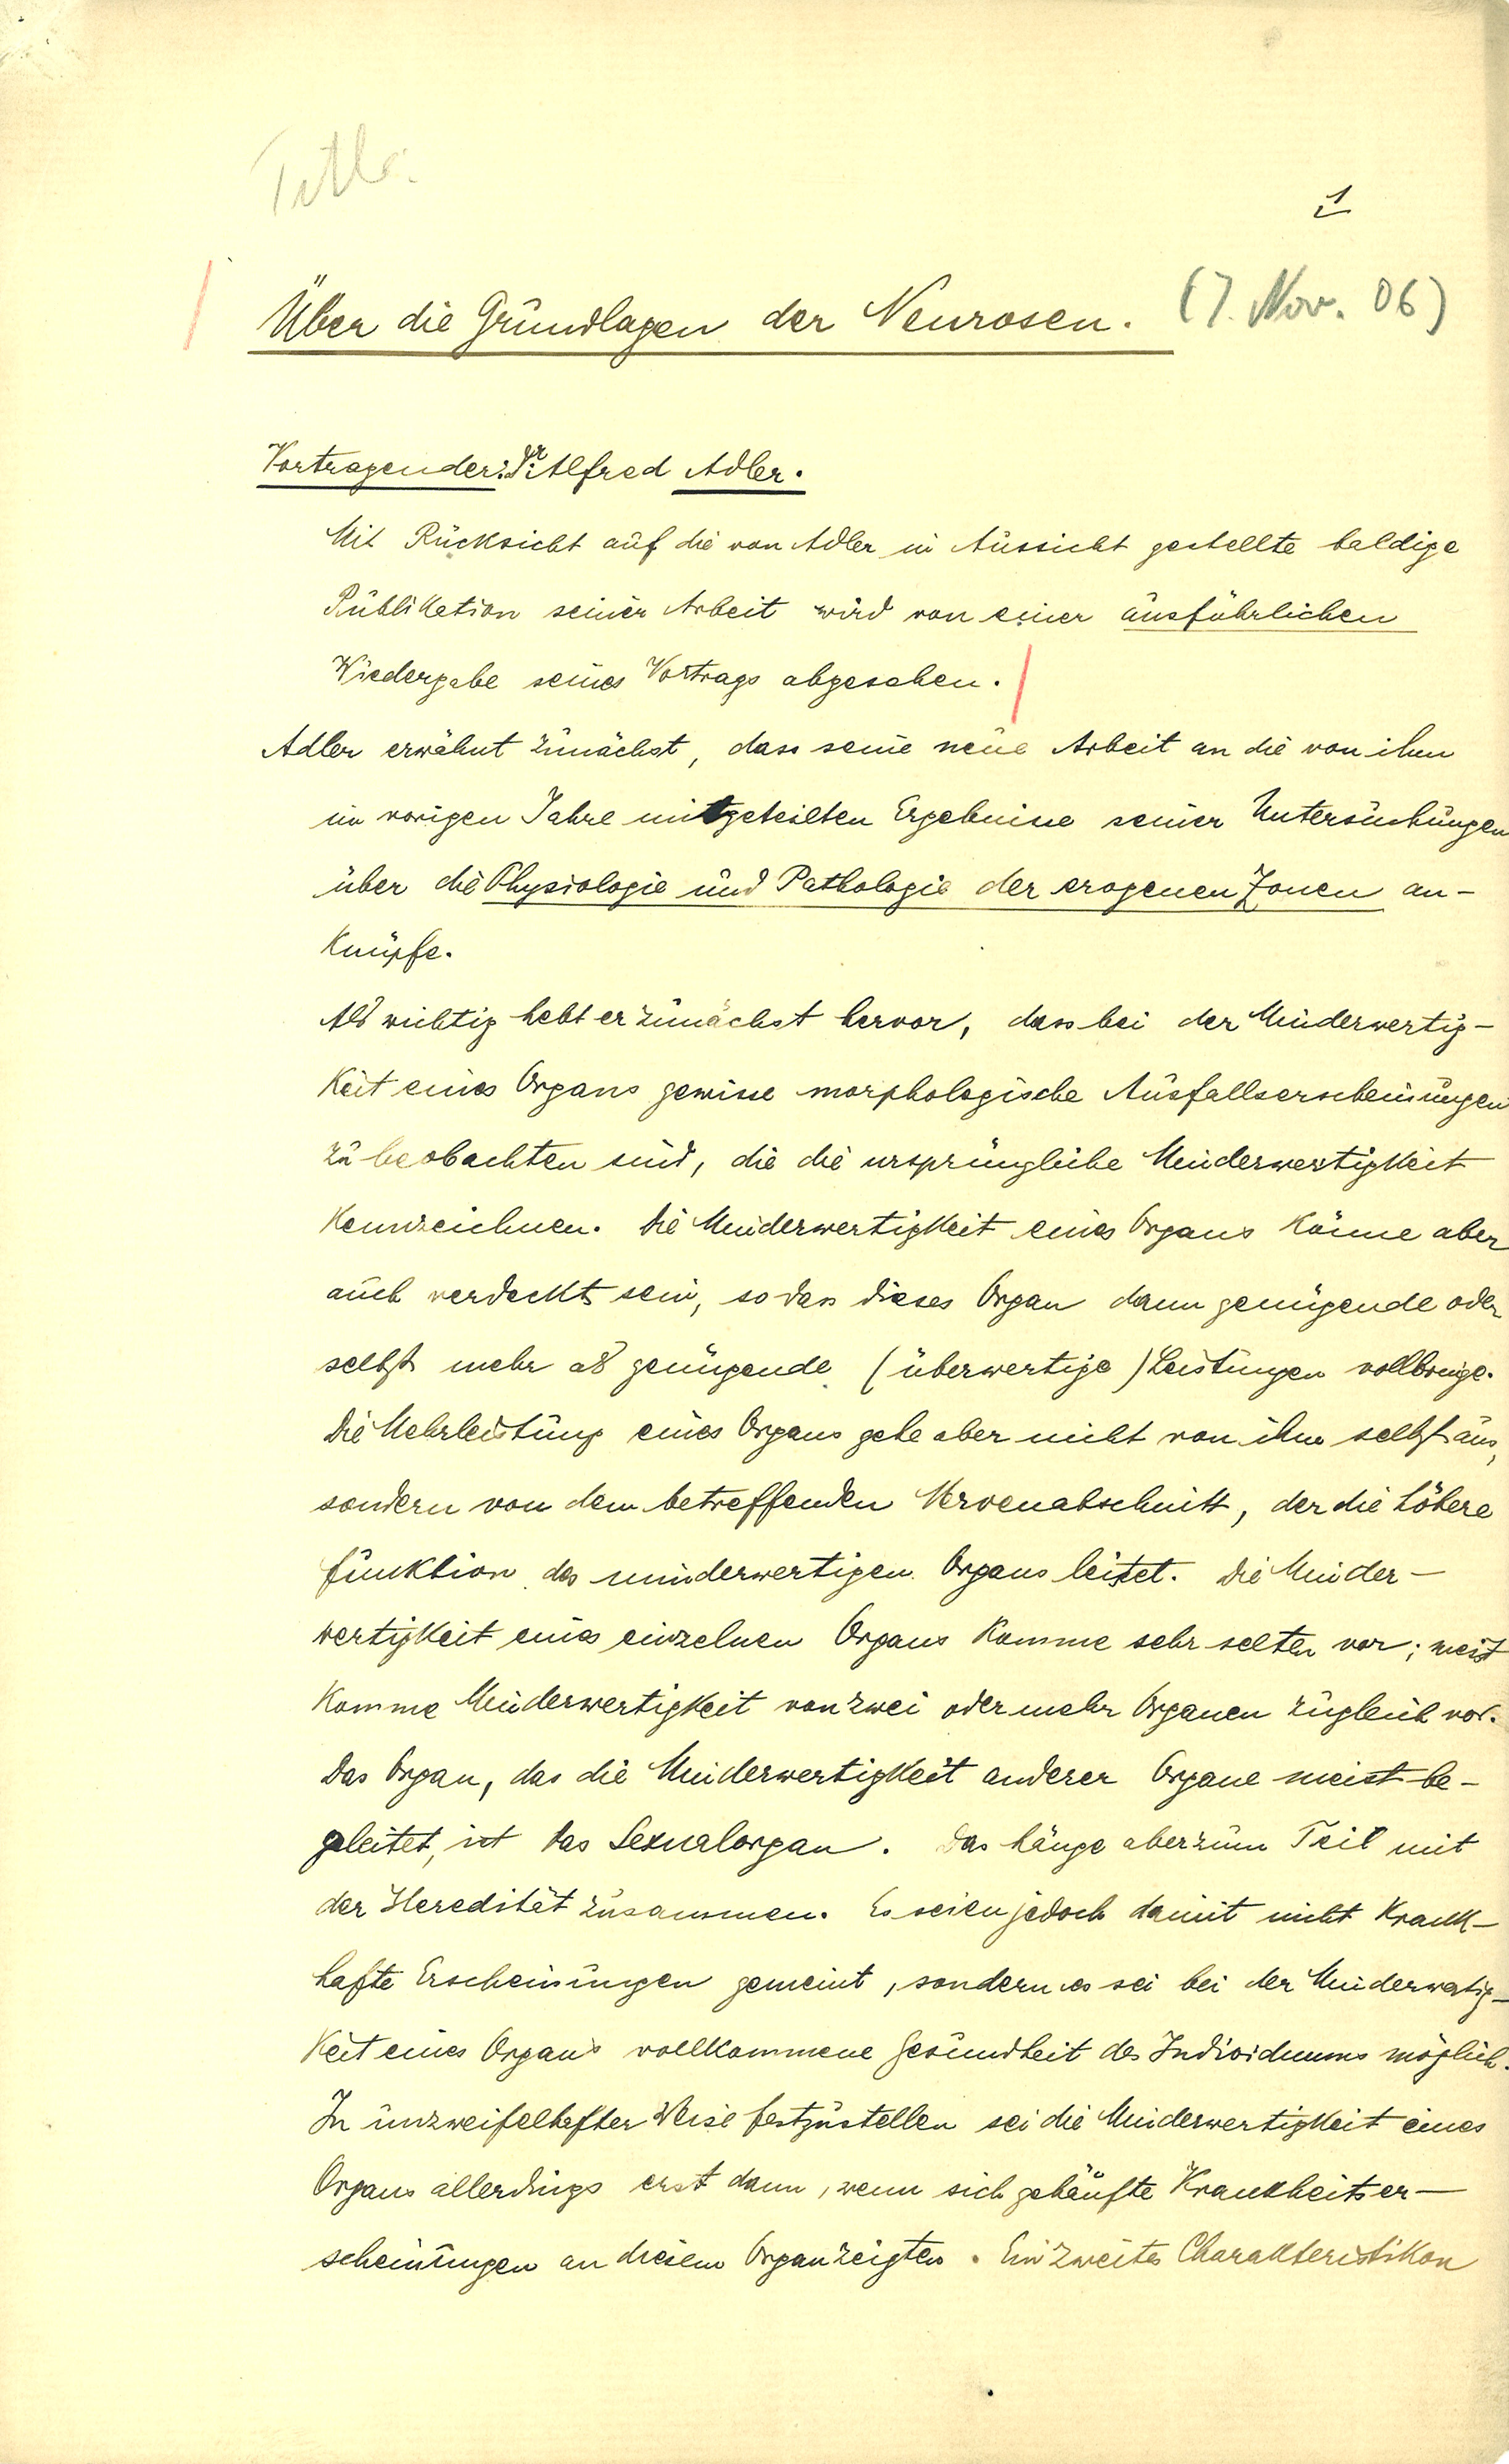 Title.
1
Über die Grundlagen der Neurosen. (7. Nov. 06)
Vortragender: Dr Alfred Adler.
Mit Rücksicht auf die von Adler in Aussicht gestellte baldige
Publikation seiner Arbeit wird von einer ausführlichen
Wiedergabe seines Vortrags abgesehen.
Adler erwähnt zunächst, dass seine neue Arbeit an die von ihm
im vorigen Jahre mitgeteilten Ergebnisse seiner Untersuchungen
über die Physiologie und Pathologie der erogenen Zonen an-
knüpfe.
Als wichtig hebt er zunächst hervor, dass bei der Minderwertig-
keit eines Organs gewisse morphologische Ausfallserscheinungen
zu beobachten sind, die die ursprüngliche Minderwertigkeit
kennzeichnen. Die Minderwertigkeit eines Organs könne aber
auch verdeckt sein, so dass dieses Organ dann genügende oder
selbst mehr als genügende (überwertige) Leistungen vollbringe.
Die Mehrleistung eines Organs gehe aber nicht von ihm selbst aus,
sondern von dem betreffenden Nervenabschnitt, der die höhere
Funktion des minderwertigen Organs leitet. Die Minder-
wertigkeit eines einzelnen Organs komme sehr selten vor; meist
komme Minderwertigkeit von zwei oder mehr Organen zugleich vor.
Das Organ, das die Minderwertigkeit anderer Organe meist be-
gleitet, ist das Sexualorgan. Das hänge aber zum Teil mit
der Heredität zusammen. Es seien jedoch damit nicht krank-
hafte Erscheinungen gemeint, sondern es sei bei der Minderwertig-
keit eines Organs vollkommene Gesundheit des Individuums möglich.
In unzweifelhafter Weise festzustellen sei die Minderwertigkeit eines
Organs allerdings erst dann, wenn sich gehäufte Krankheitser-
scheinungen an diesem Organ zeigten. Ein zweites Charakteristikon